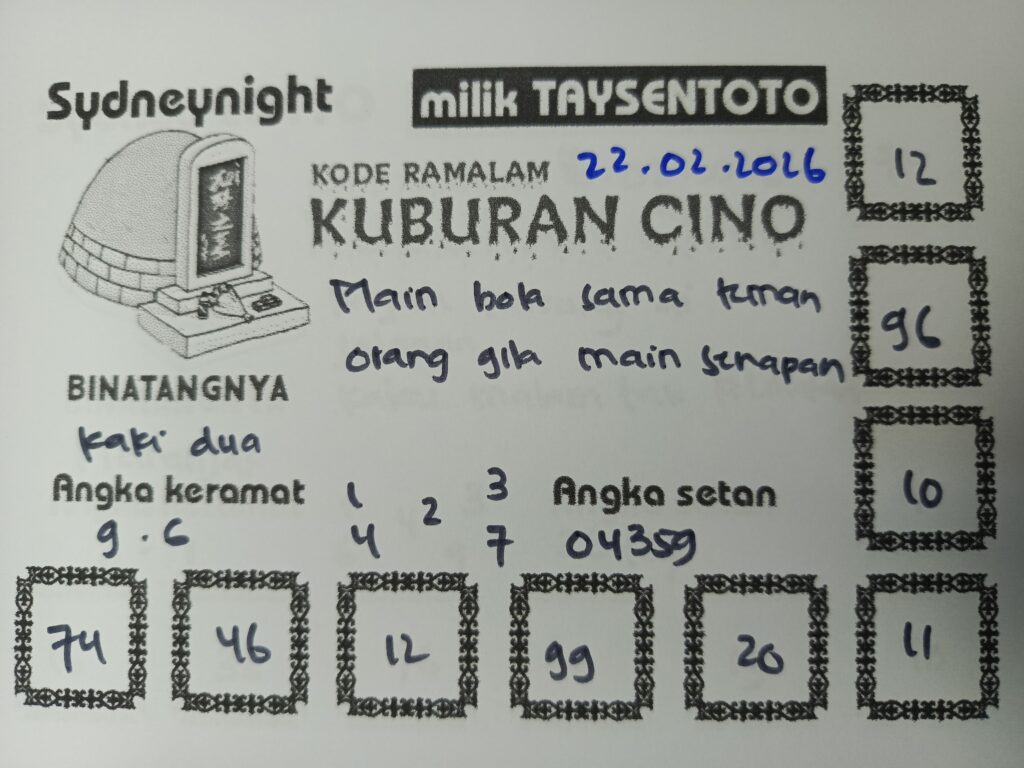 Sydneynight
milik TAYSENTOTO
KODE RAMALAM 22.02.2026
KUBURAN CINO
Main bola sama teman
orang gila main senapan
BINATANGNYA
kaki dua
Angka keramat
9 . 6
1 3
2
4 7
Angka setan
04359
12
96
10
11
74 46 12 99 20